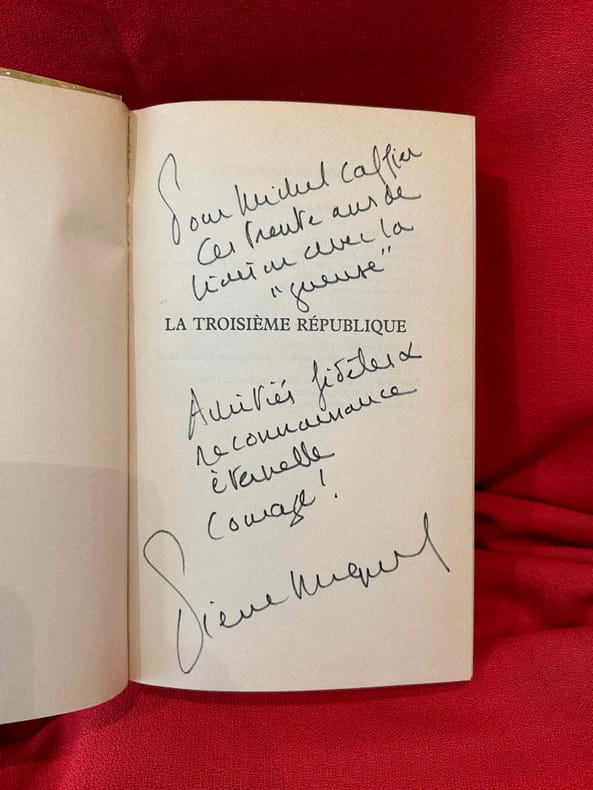 Pour Michel Caffier
Ces trente ans de
liaison avec la
"gueuse"
LA TROISIÈME RÉPUBLIQUE
Amitiés fidèles &
reconnaissance
éternelle
Courage !
Pierre Miquel